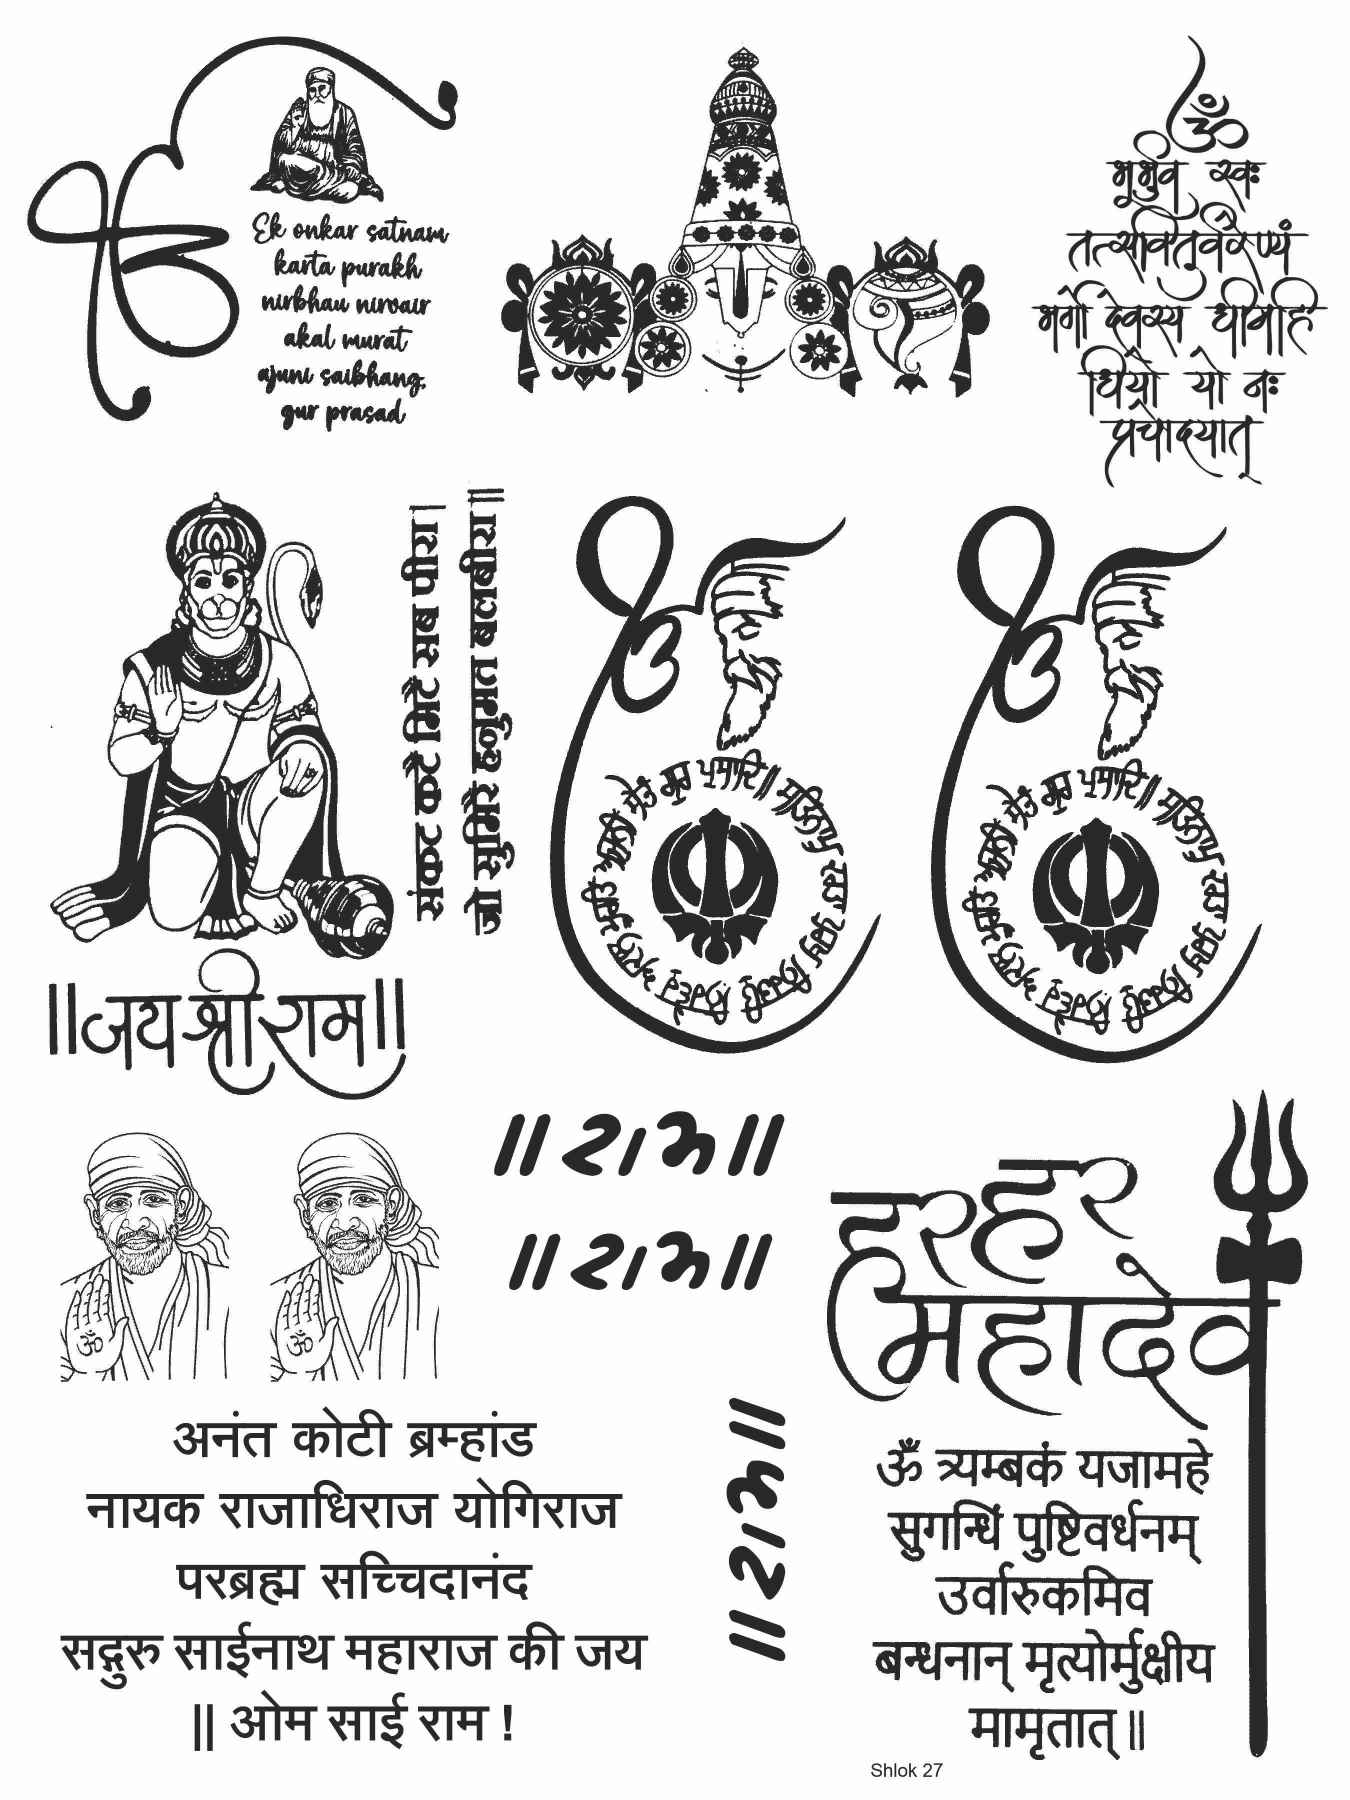 Ek onkar satnam
karta purakh
nirbhau nirvair
akal murat
ajuni saibhang,
gur prasad
ॐ
भूर्भुव स्वः
तत्सवितुर्वरेण्यं
भर्गो देवस्य धीमहि
धियो यो नः
प्रचोदयात्
संकट कटै मिटै सब पीरा।
जो सुमिरै हनुमत बलबीरा॥
॥जय श्री राम॥
ॐ
ॐ
॥ राम ॥
॥ राम ॥
॥ राम ॥
हर हर
महादेव
अनंत कोटी ब्रम्हांड
नायक राजाधिराज योगिराज
परब्रह्म सच्चिदानंद
सद्गुरु साईनाथ महाराज की जय
|| ओम साई राम !
ॐ त्र्यम्बकं यजामहे
सुगन्धिं पुष्टिवर्धनम्
उर्वारुकमिव
बन्धनान् मृत्योर्मुक्षीय
मामृतात् ॥
Shlok 27